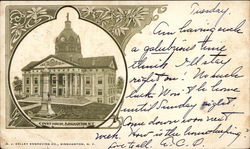 Tuesday.
Am having such
a galubrious time
think I'll stay
right on! No such
luck. Won't be home
until Sunday night
Come down soon next
week. How is the
COURT HOUSE, BINGHAMTON, N.Y.
A. J. KELLEY ENGRAVING CO., BINGHAMTON, N. Y.